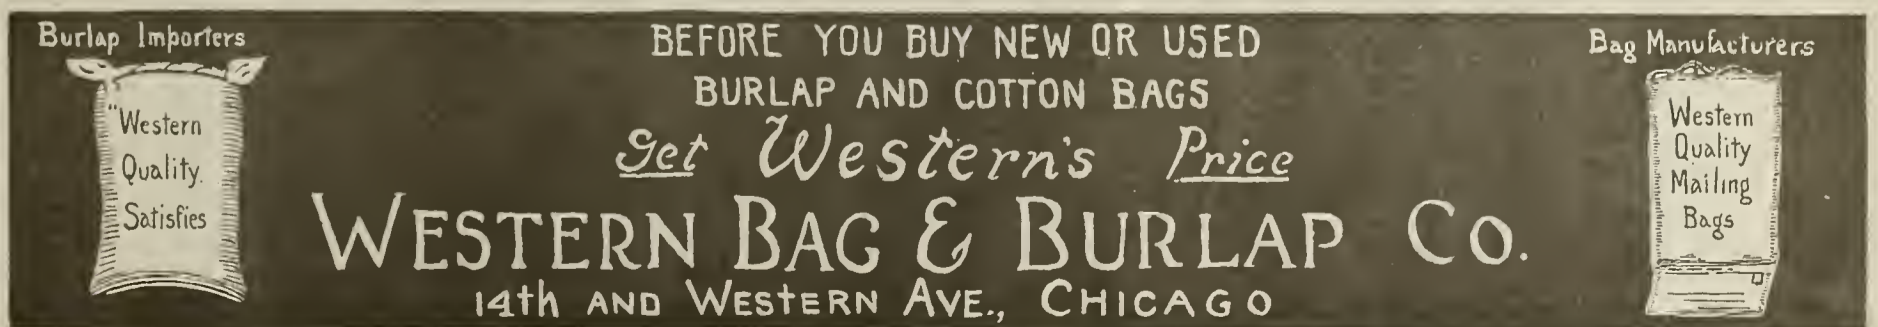 Burlap Importers
"Western
Quality.
Satisfies
BEFORE YOU BUY NEW OR USED
BURLAP AND COTTON BAGS
Get Western's Price
WESTERN BAG & BURLAP CO.
14th AND WESTERN AVE., CHICAGO
Bag Manufacturers
Western
Quality
Mailing
Bags